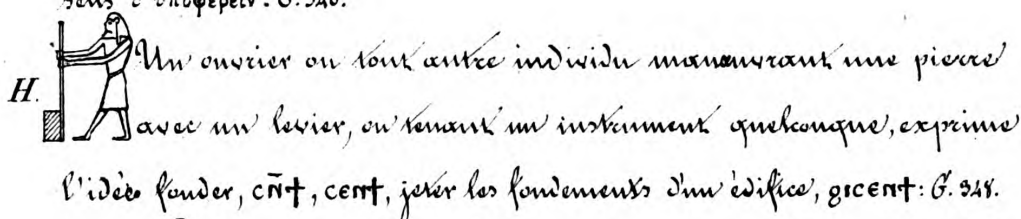 sens d'ὑποφέρειν. G. 346.
H. Un ouvrier ou tout autre individu manœuvrant une pierre
avec un levier, ou tenant un instrument quelconque, exprime
l'idée fonder, ⲥⲛ̄ϯ, ⲥⲉⲛϯ, jeter les fondements d'un édifice, ϩⲓⲥⲉⲛϯ: G. 348.